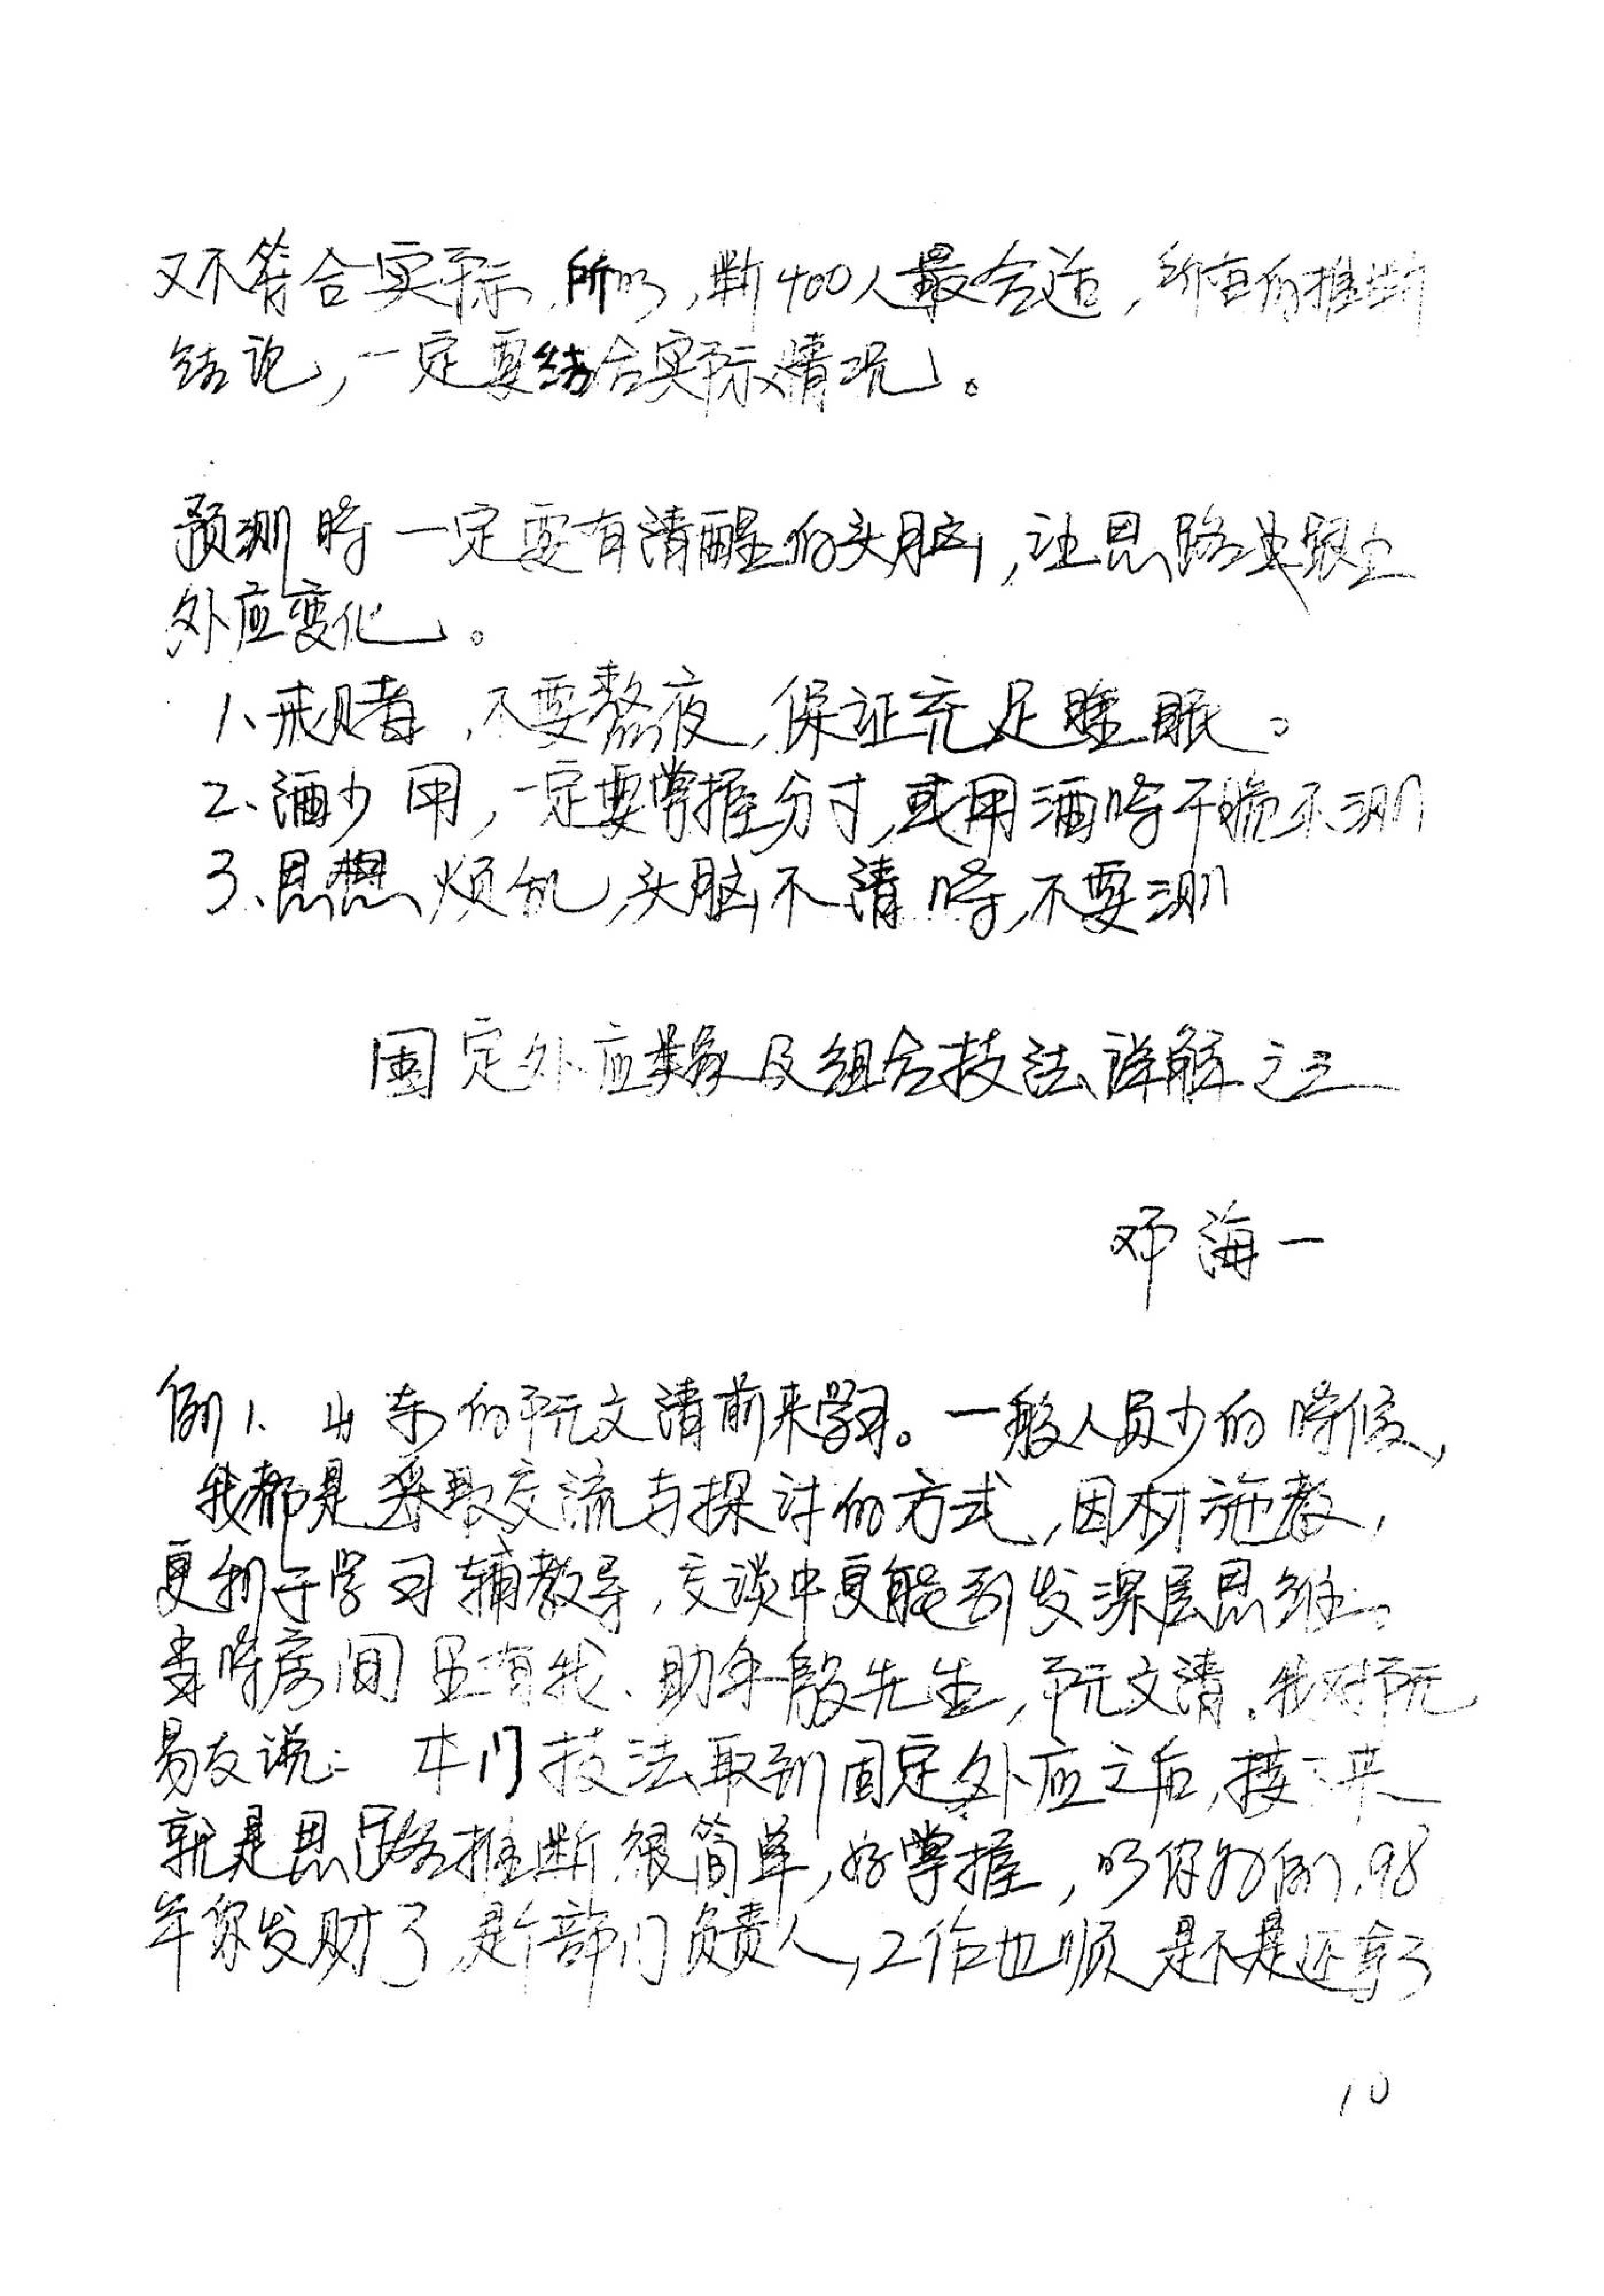 又不符合实际,所以,断400人最合适,所有的推断
结论,一定要结合实际情况。
预测时一定要有清醒的头脑,让思路步跟上
外应变化。
1、戒赌,不要熬夜,保证充足睡眠。
2、酒少用,一定要掌握分寸,或用酒时干脆不测
3、思想烦乱,头脑不清时,不要测
固定外应类象及组合技法详解之三
邓海一
例1、山东的阮文清前来学习。一般人员少的时候,
我都是采取交流与探讨的方式,因材施教,
更利于学习辅教导,交谈中更能引发深层思维。
当时房间里有我、助手殷先生,阮文清。我对阮
易友说:本门技法取到固定外应之后,接下来
就是思路推断很简单,好掌握,以你为例,98
年你发财了,是个部门负责人,工作也顺是不是还拿了
10